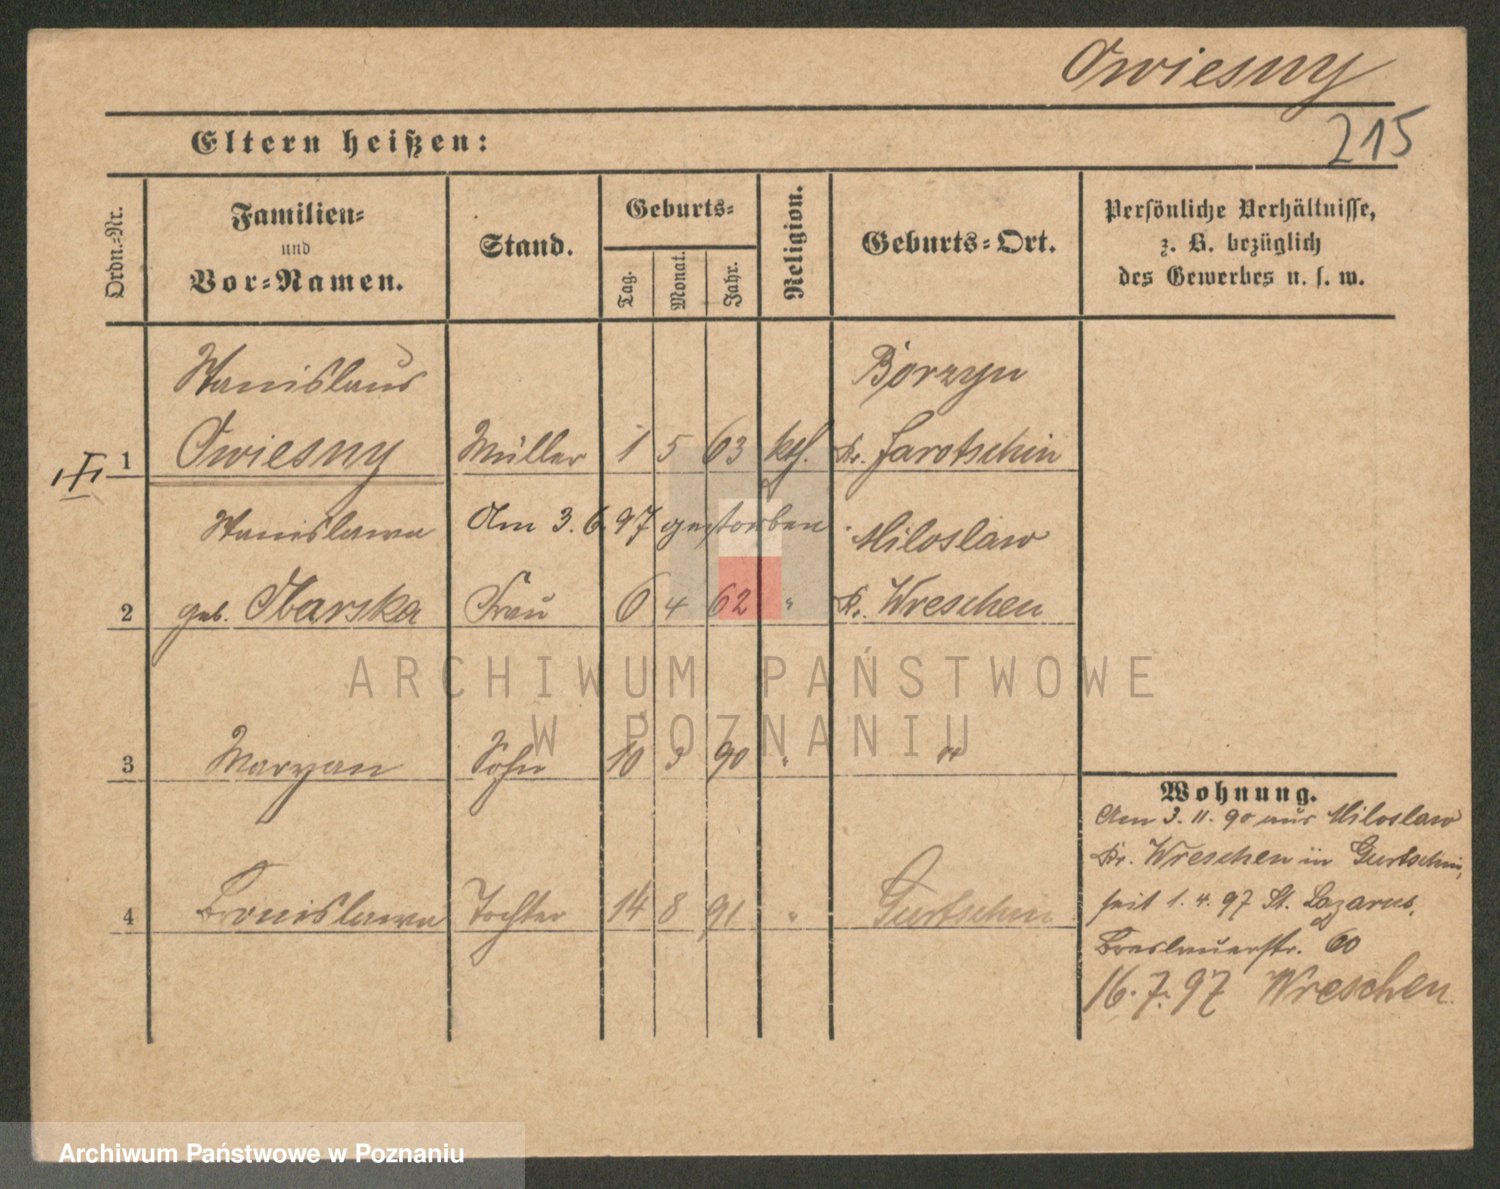 Owiesny
215
Eltern heißen:
Ordn.=Nr.
Familien=
und
Vor=Namen.
Stand.
Geburts=
Tag.
Monat.
Jahr.
Religion.
Geburts=Ort.
Persönliche Verhältnisse,
z. B. bezüglich
des Gewerbes u. s. w.
Stanislaus Borzyn
1 Owiesny Müller 1 5 63 kth. Kr. Jarotschin
Stanislawa Am 3. 6. 97 gestorben. Miloslaw
2 geb. Frau 6 4 62 " Kr. Wreschen
3 Maryan Sohn 10 9 90 " "
4 Bronislawa Tochter 14 8 91 " Gurtschin
Wohnung.
Am 3. 11. 90 aus Miloslaw
Kr. Wreschen in Gurtschin,
seit 1. 4. 97 St. Lazarus,
Breslauerstr. 60
16. 7. 97 Wreschen.
ARCHIWUM PAŃSTWOWE
W POZNANIU
Archiwum Państwowe w Poznaniu